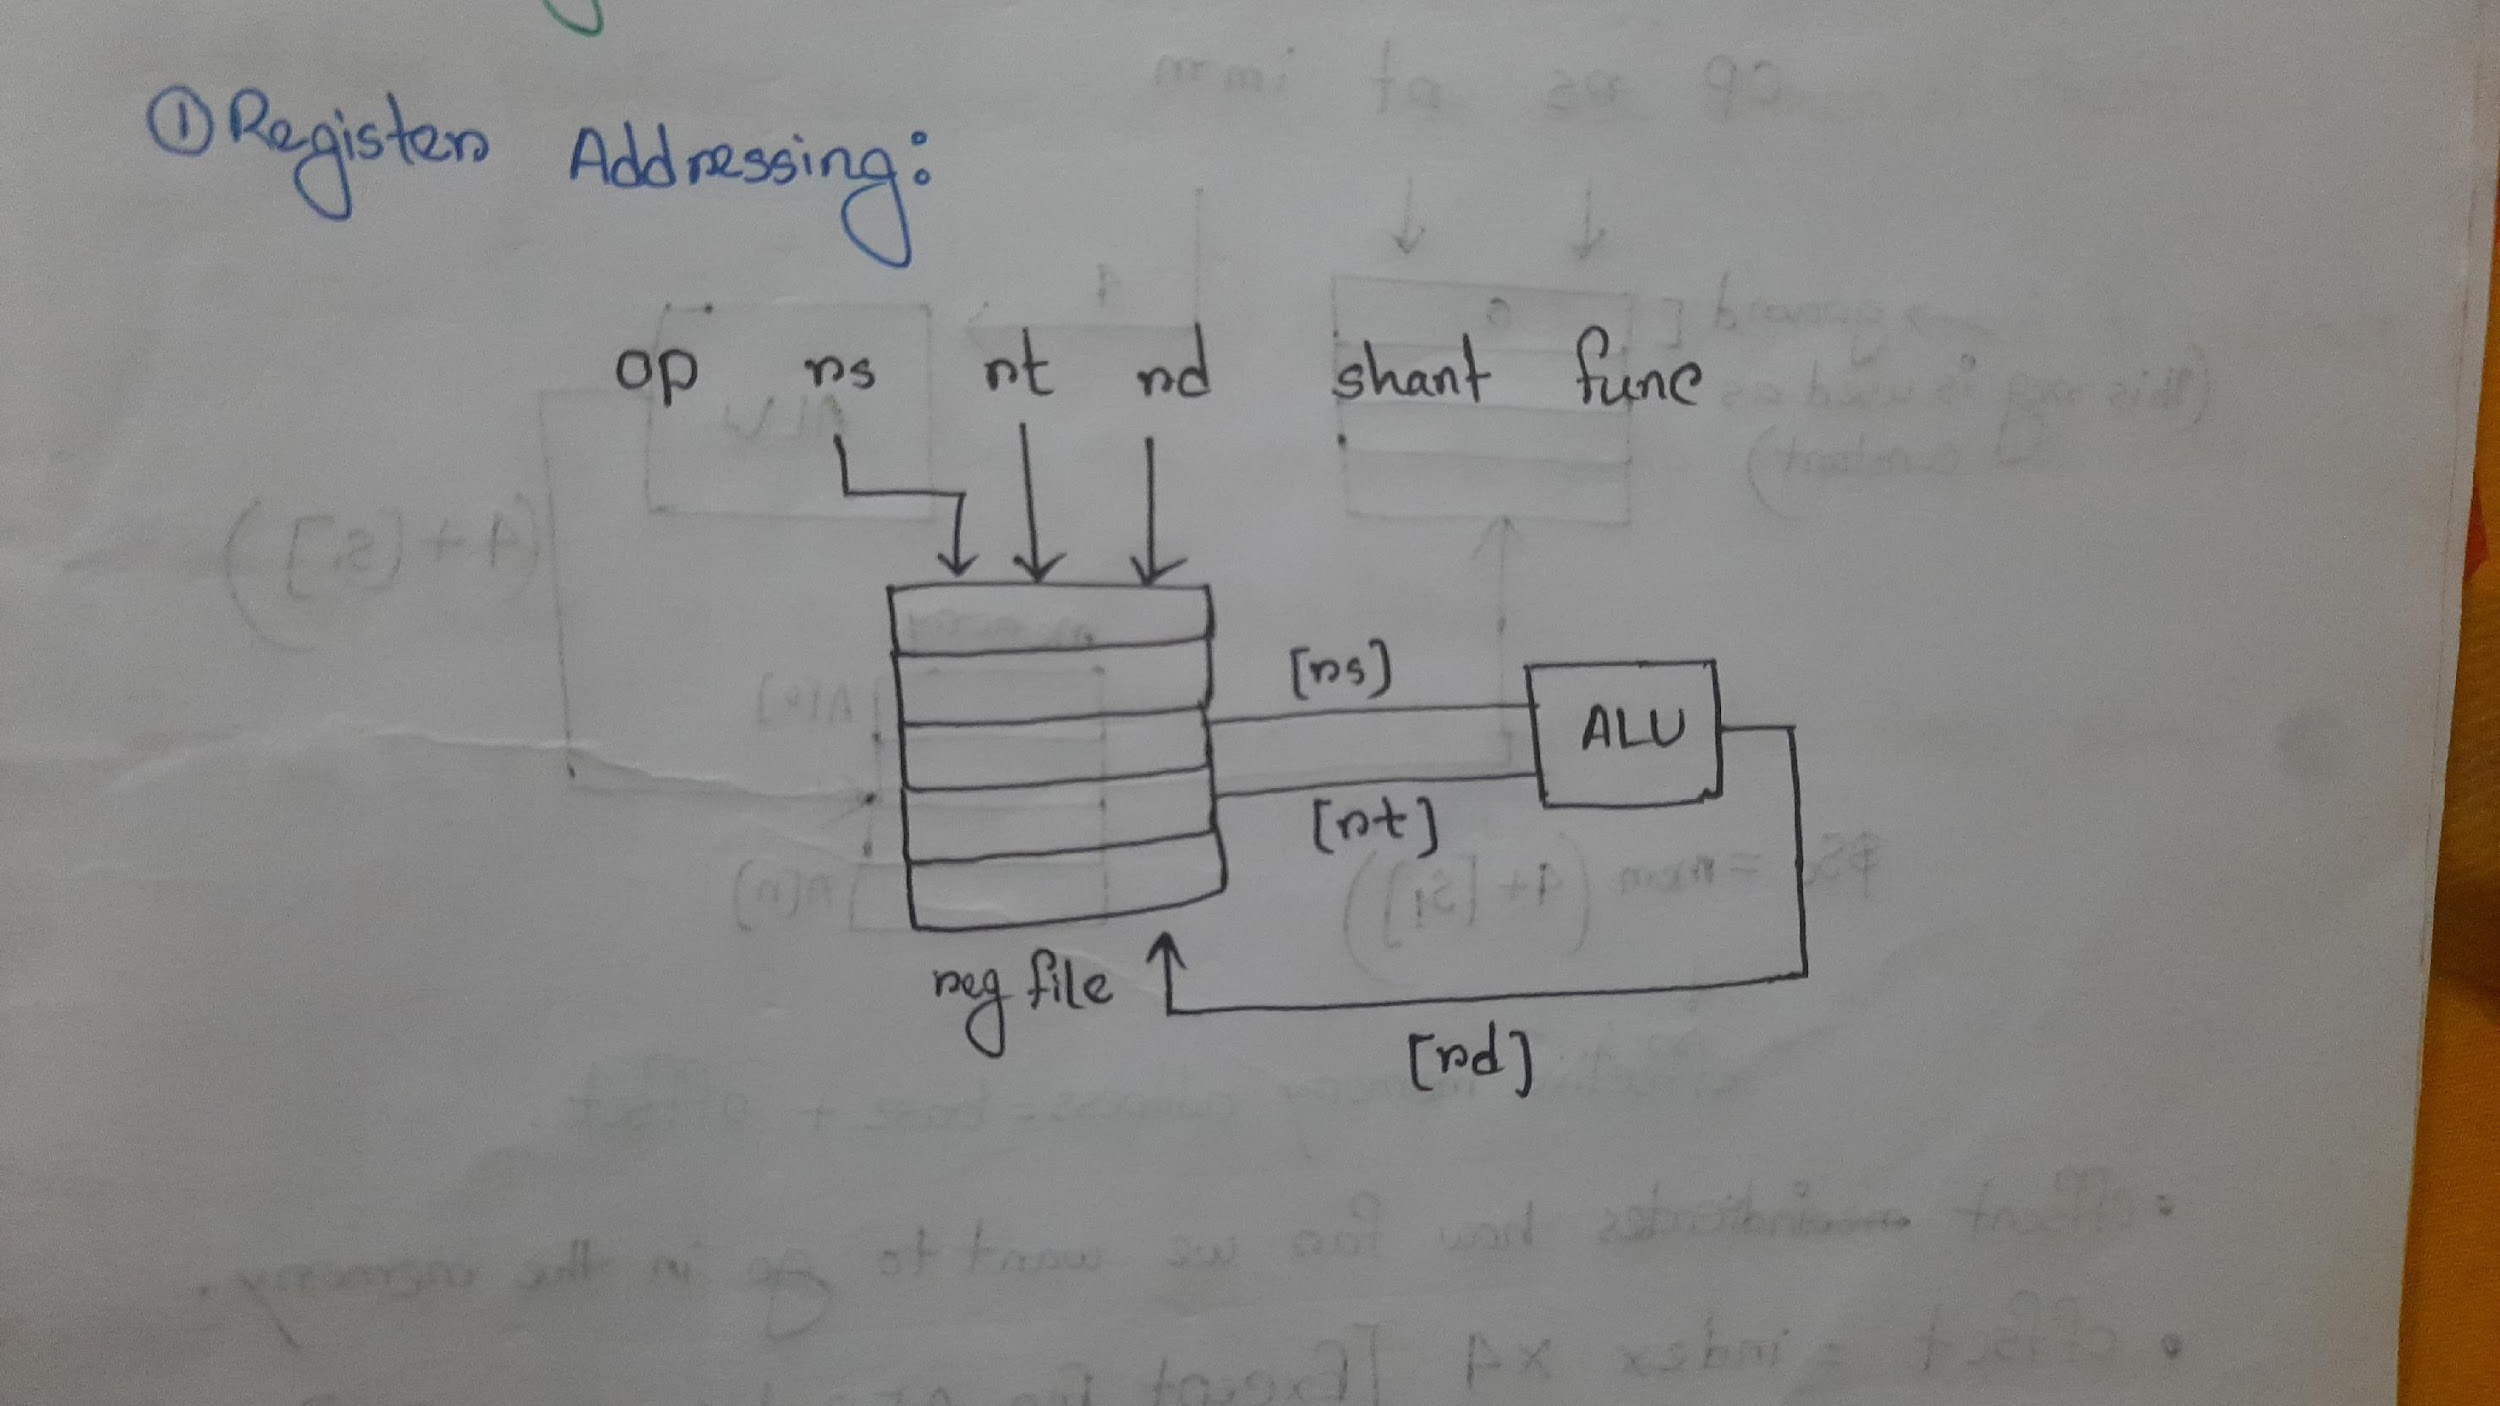 ① Register Addressing:
op rs rt rd shant func
[rs]
ALU
[rt]
reg file
[rd]